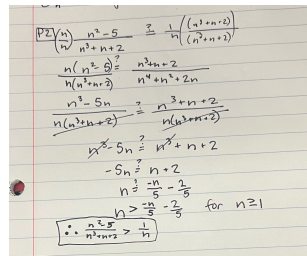 P2 (n/n) (n²-5)/(n³+n+2) ≟ 1/n ((n³+n+2)/(n³+n+2))
n(n²-5)/n(n³+n+2) ≟ (n³+n+2)/(n⁴+n²+2n)
(n³-5n)/n(n³+n+2) ≟ (n³+n+2)/n(n³+n+2)
n³-5n ≟ n³+n+2
-5n ≟ n+2
n ≟ -n/5 - 2/5
n > -n/5 - 2/5 for n≥1
∴ (n²-5)/(n³+n+2) > 1/n